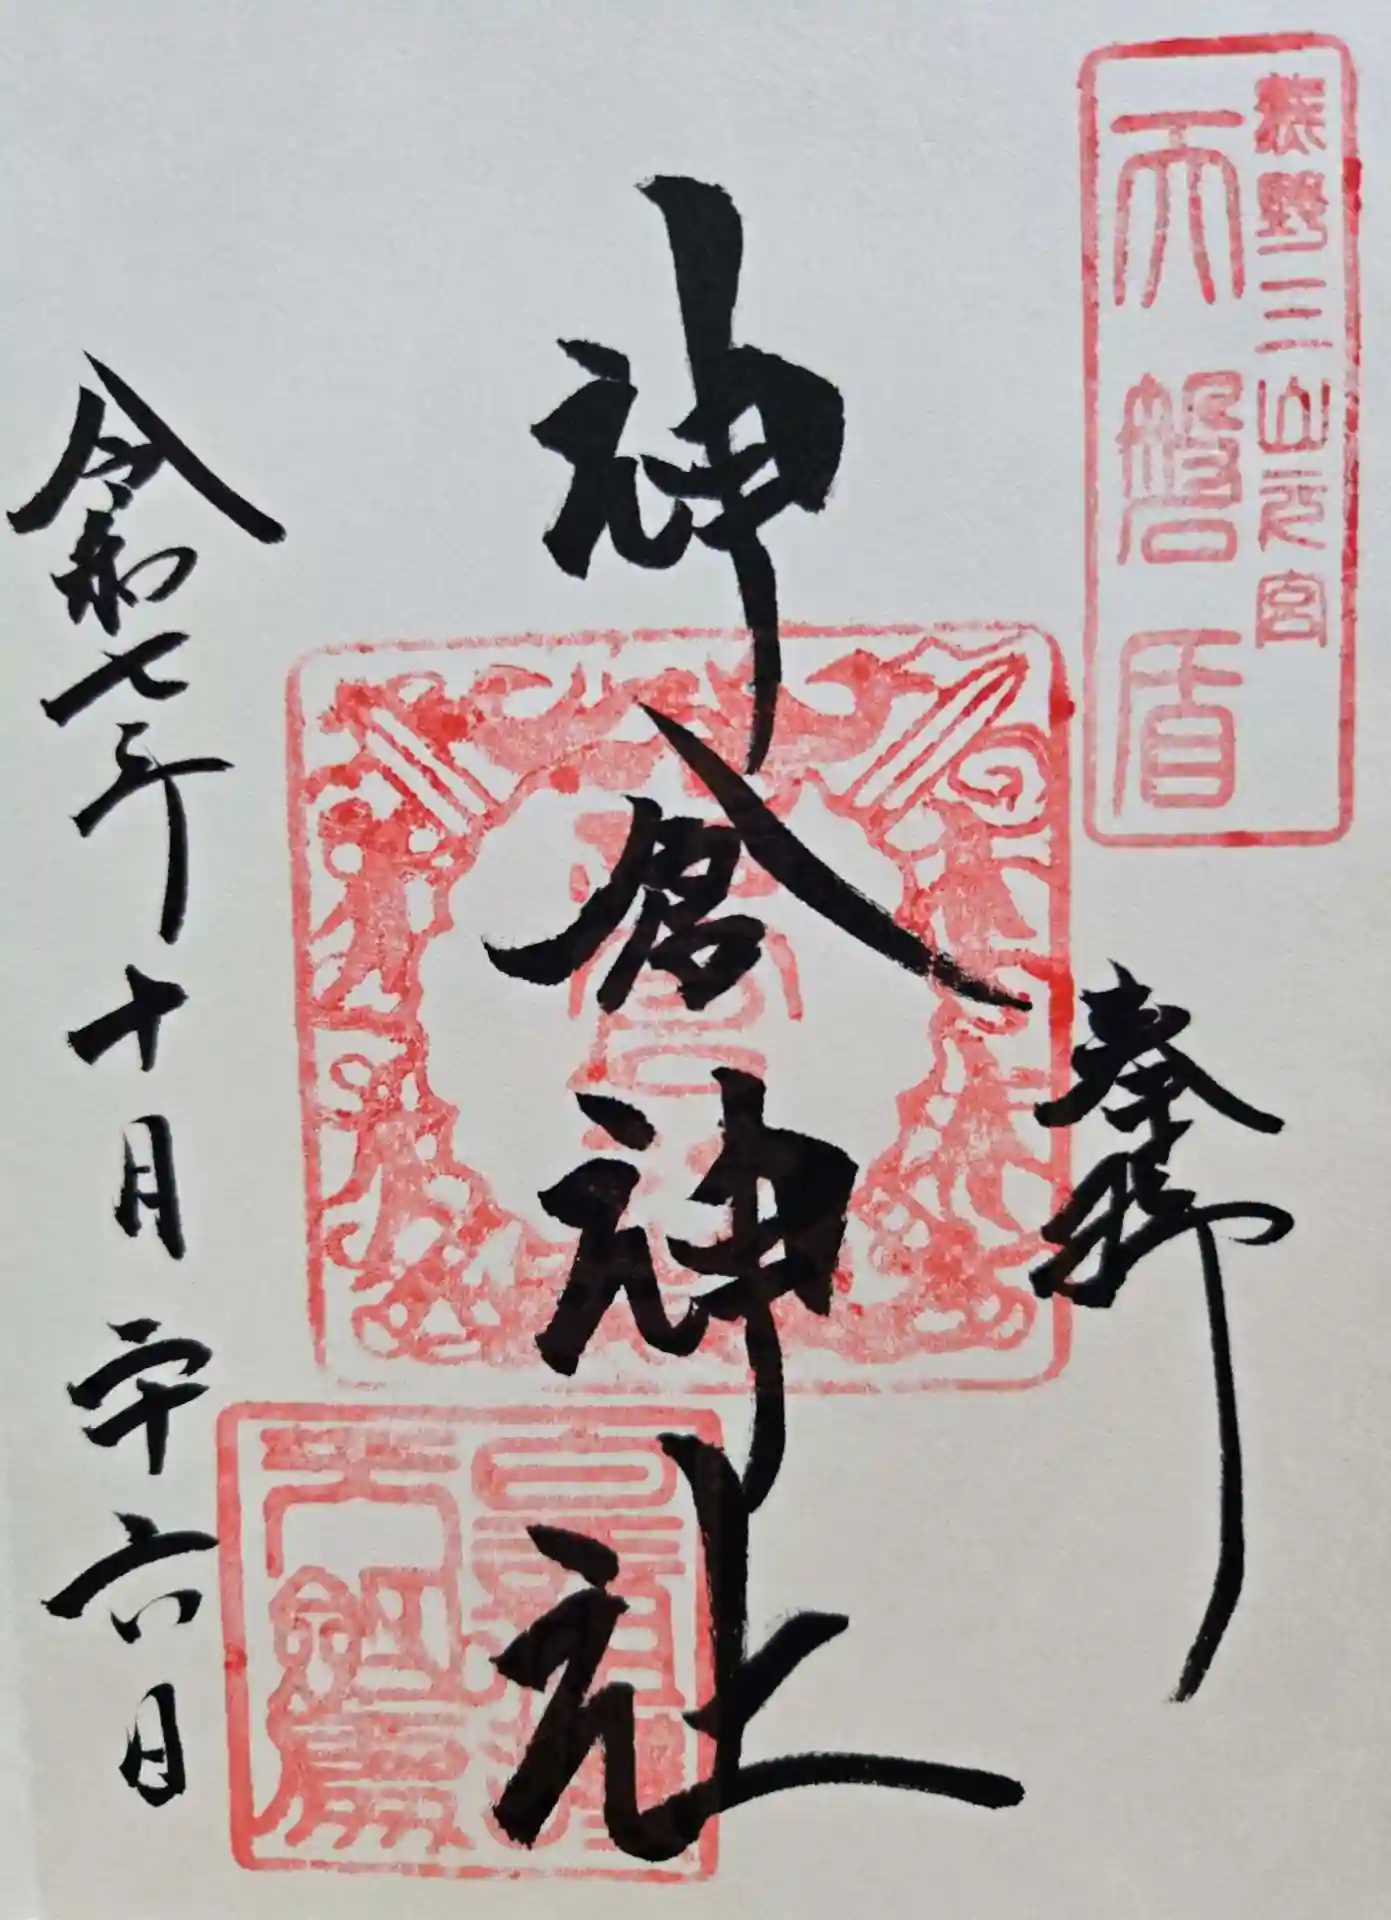 熊野三山元宮
天磐盾
奉拝
神倉神社
令和七年十月二十六日